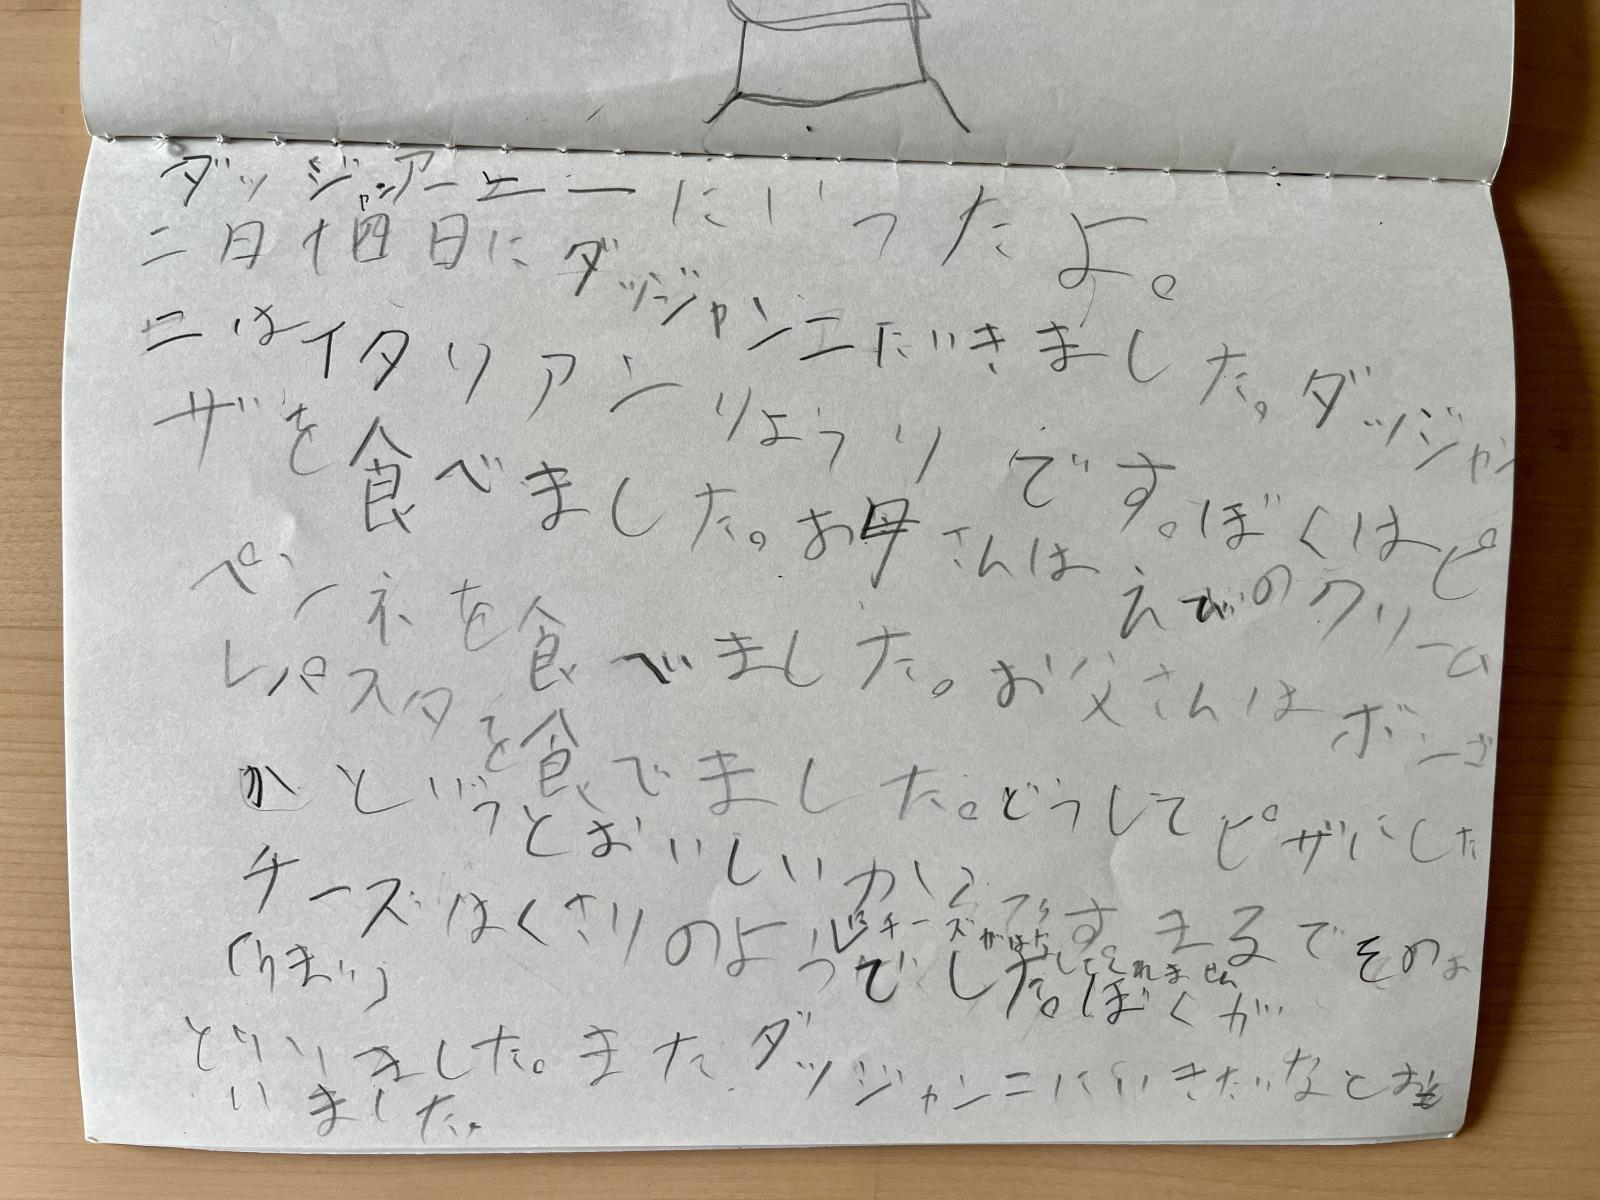 ダッジャンアーニーにいったよ。
二月十四日にダッジャンニにいきました。ダッジャン
ニはイタリアンりょうりです。ぼくはピ
ザを食べました。お母さんはえびのクリーム
ペンネを食べました。お父さんはボンゴ
レパスタを食べました。どうしてピザにした
かというとおいしいからです。まるでその
チーズはくさりのようでした。ぼくが
チーズがはなしてくれません
「うまい」
といいました。またダッジャンニにいきたいなとおも
いました。